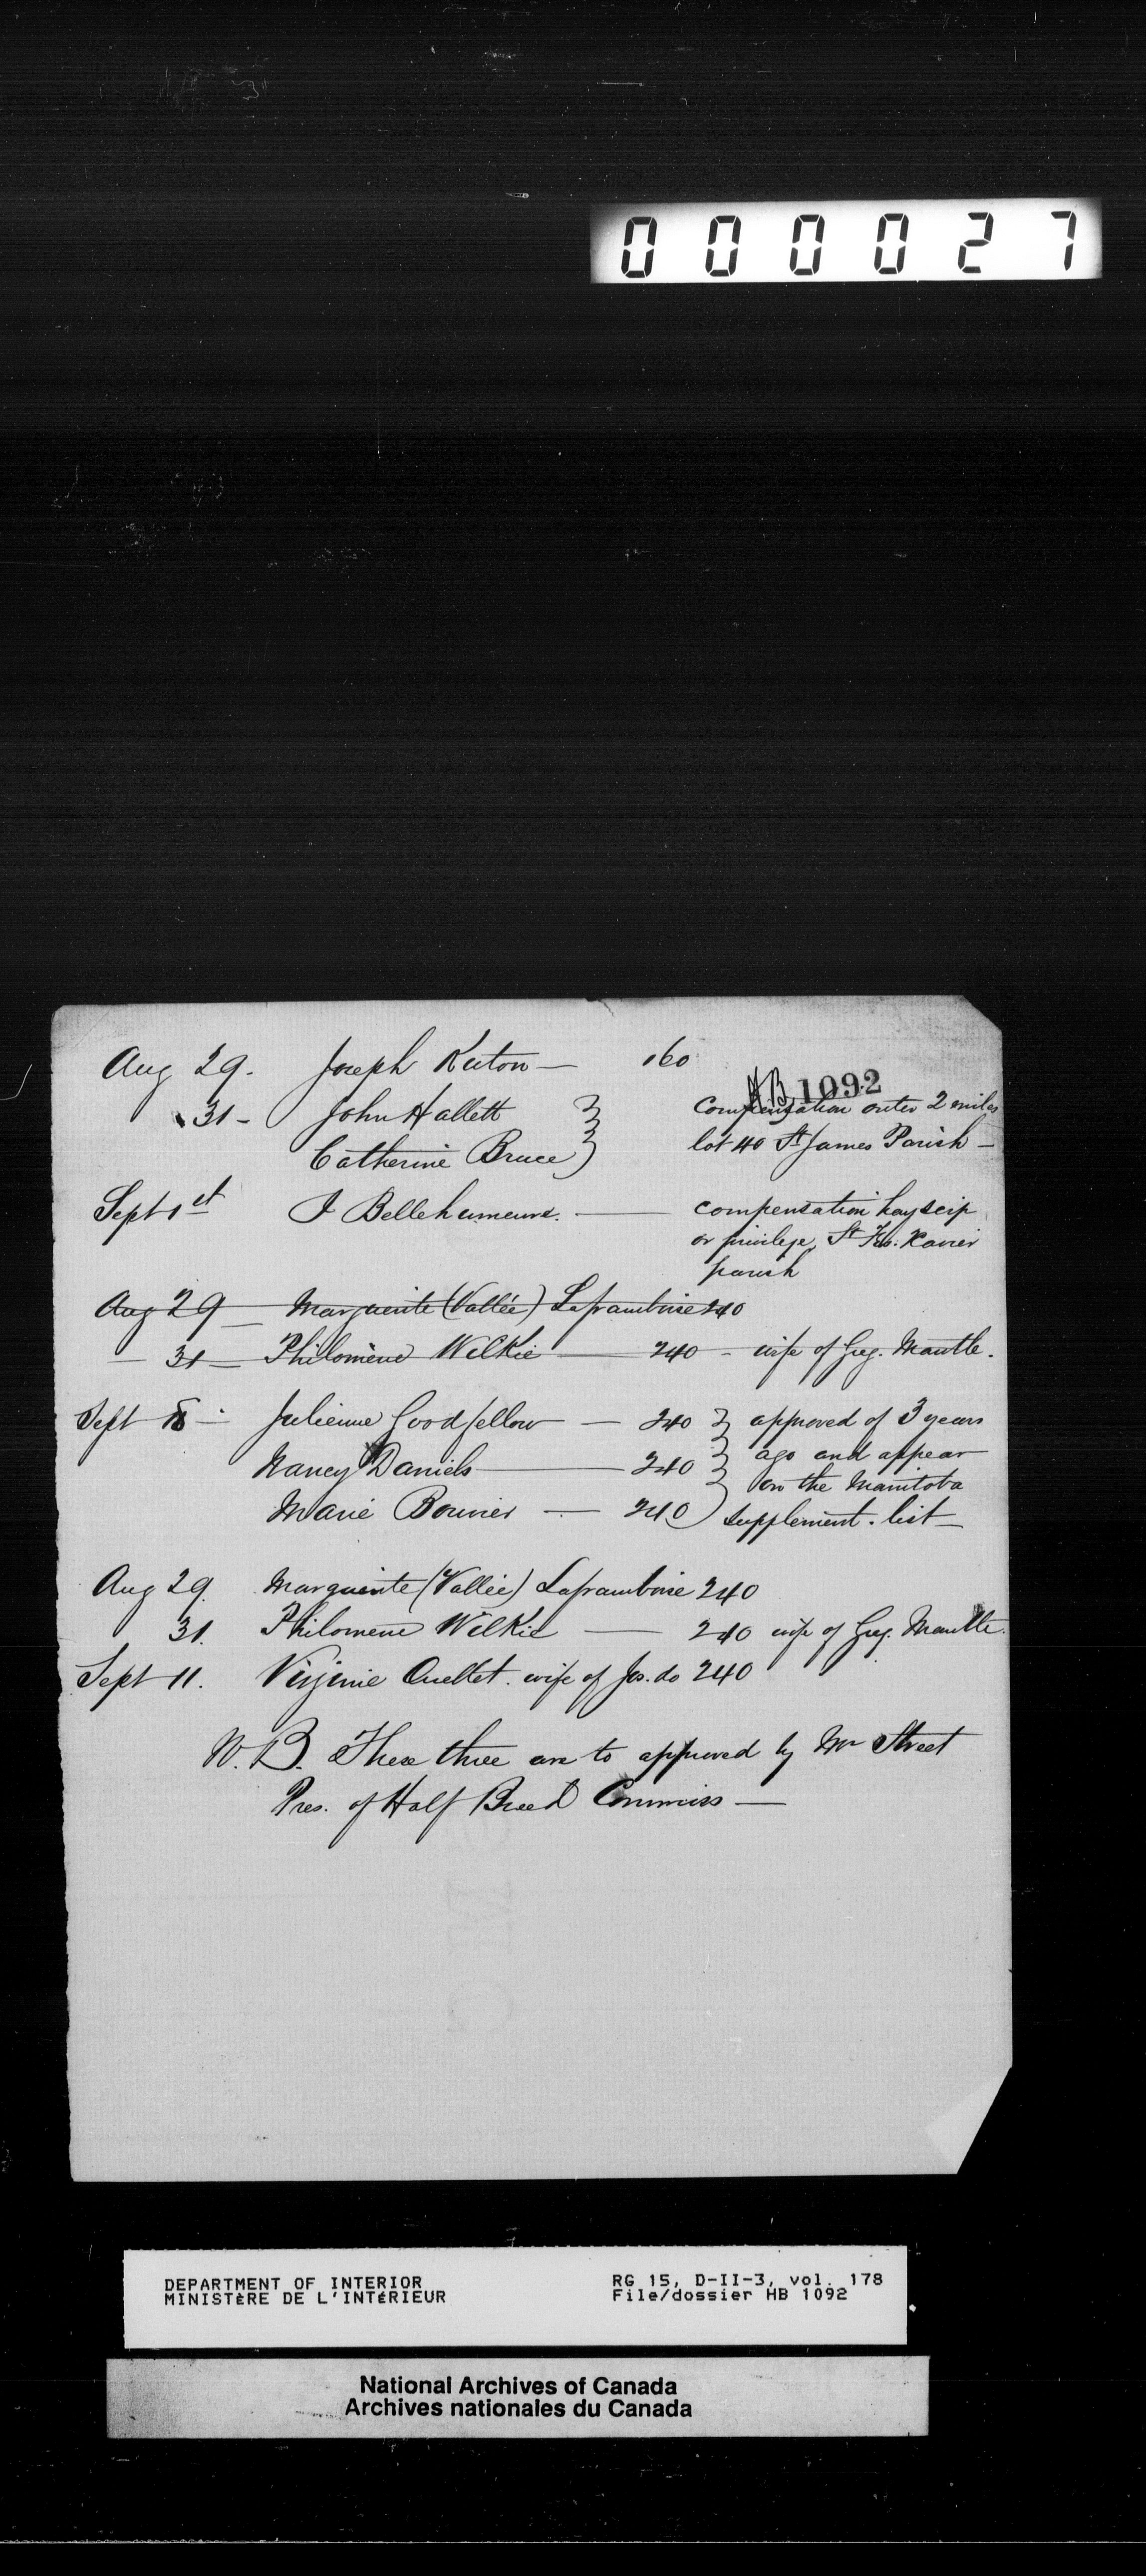 000027
HB 1092
Aug 29. Joseph Kuton — 160
31 - John Hallett compensation outer 2 miles
Catherine Bruce lot 40 St James Parish —
Sept 1st J Bellehumeur. — compensation hay scip
or privilege, St Frs. Xavier
parish
Aug 29 — Marguerite (Vallée) Laframboise 240
— 31 — Philomène Wilkie — 240 — wife of Greg. Mantle.
Sept 8 — Julienne Goodfellow — 240 approved of 3 years
Nancy Daniels — 240 ago and appear
on the Manitoba
Marie Bouvier — 240 supplement. list —
Aug 29. Marguerite (Vallée) Laframboise 240
31. Philomene Wilkie — 240 wife of Greg. Mantle.
Sept 11. Virginie Ouellet. wife of Jos. do 240
N.B. These three are to approved by Mr Street
Pres. of Half Breed Commiss —
DEPARTMENT OF INTERIOR RG 15, D-II-3, vol. 178
MINISTÈRE DE L'INTÉRIEUR File/dossier HB 1092
National Archives of Canada
Archives nationales du Canada